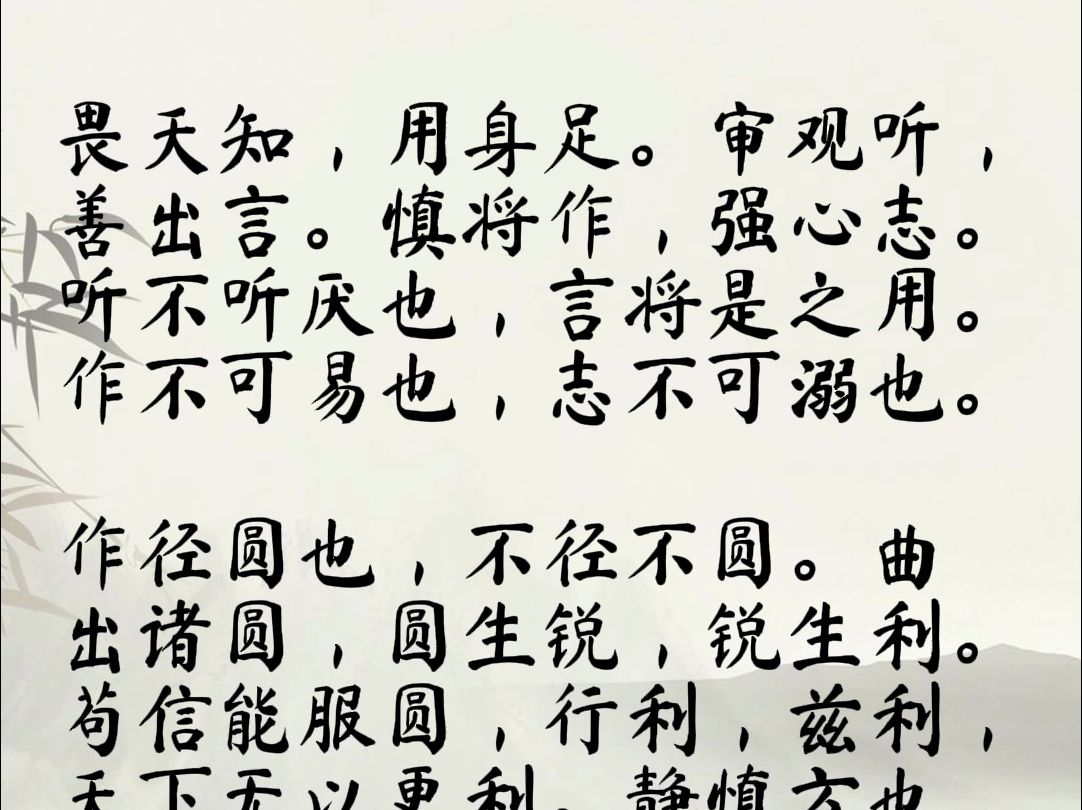 畏天知，用身足。审观听，
善出言。慎将作，强心志。
听不听厌也，言将是之用。
作不可易也，志不可溺也。
作径圆也，不径不圆。曲
出诸圆，圆生锐，锐生利。
苟信能服圆，行利，兹利，
天下无以更利。静慎玄也